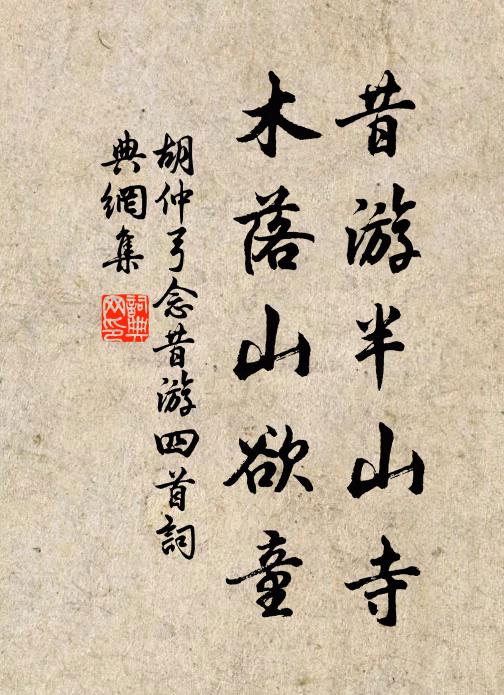 昔游半山寺
木落山欲童
胡仲弓念昔游四首詞
典網集
詞典
网印